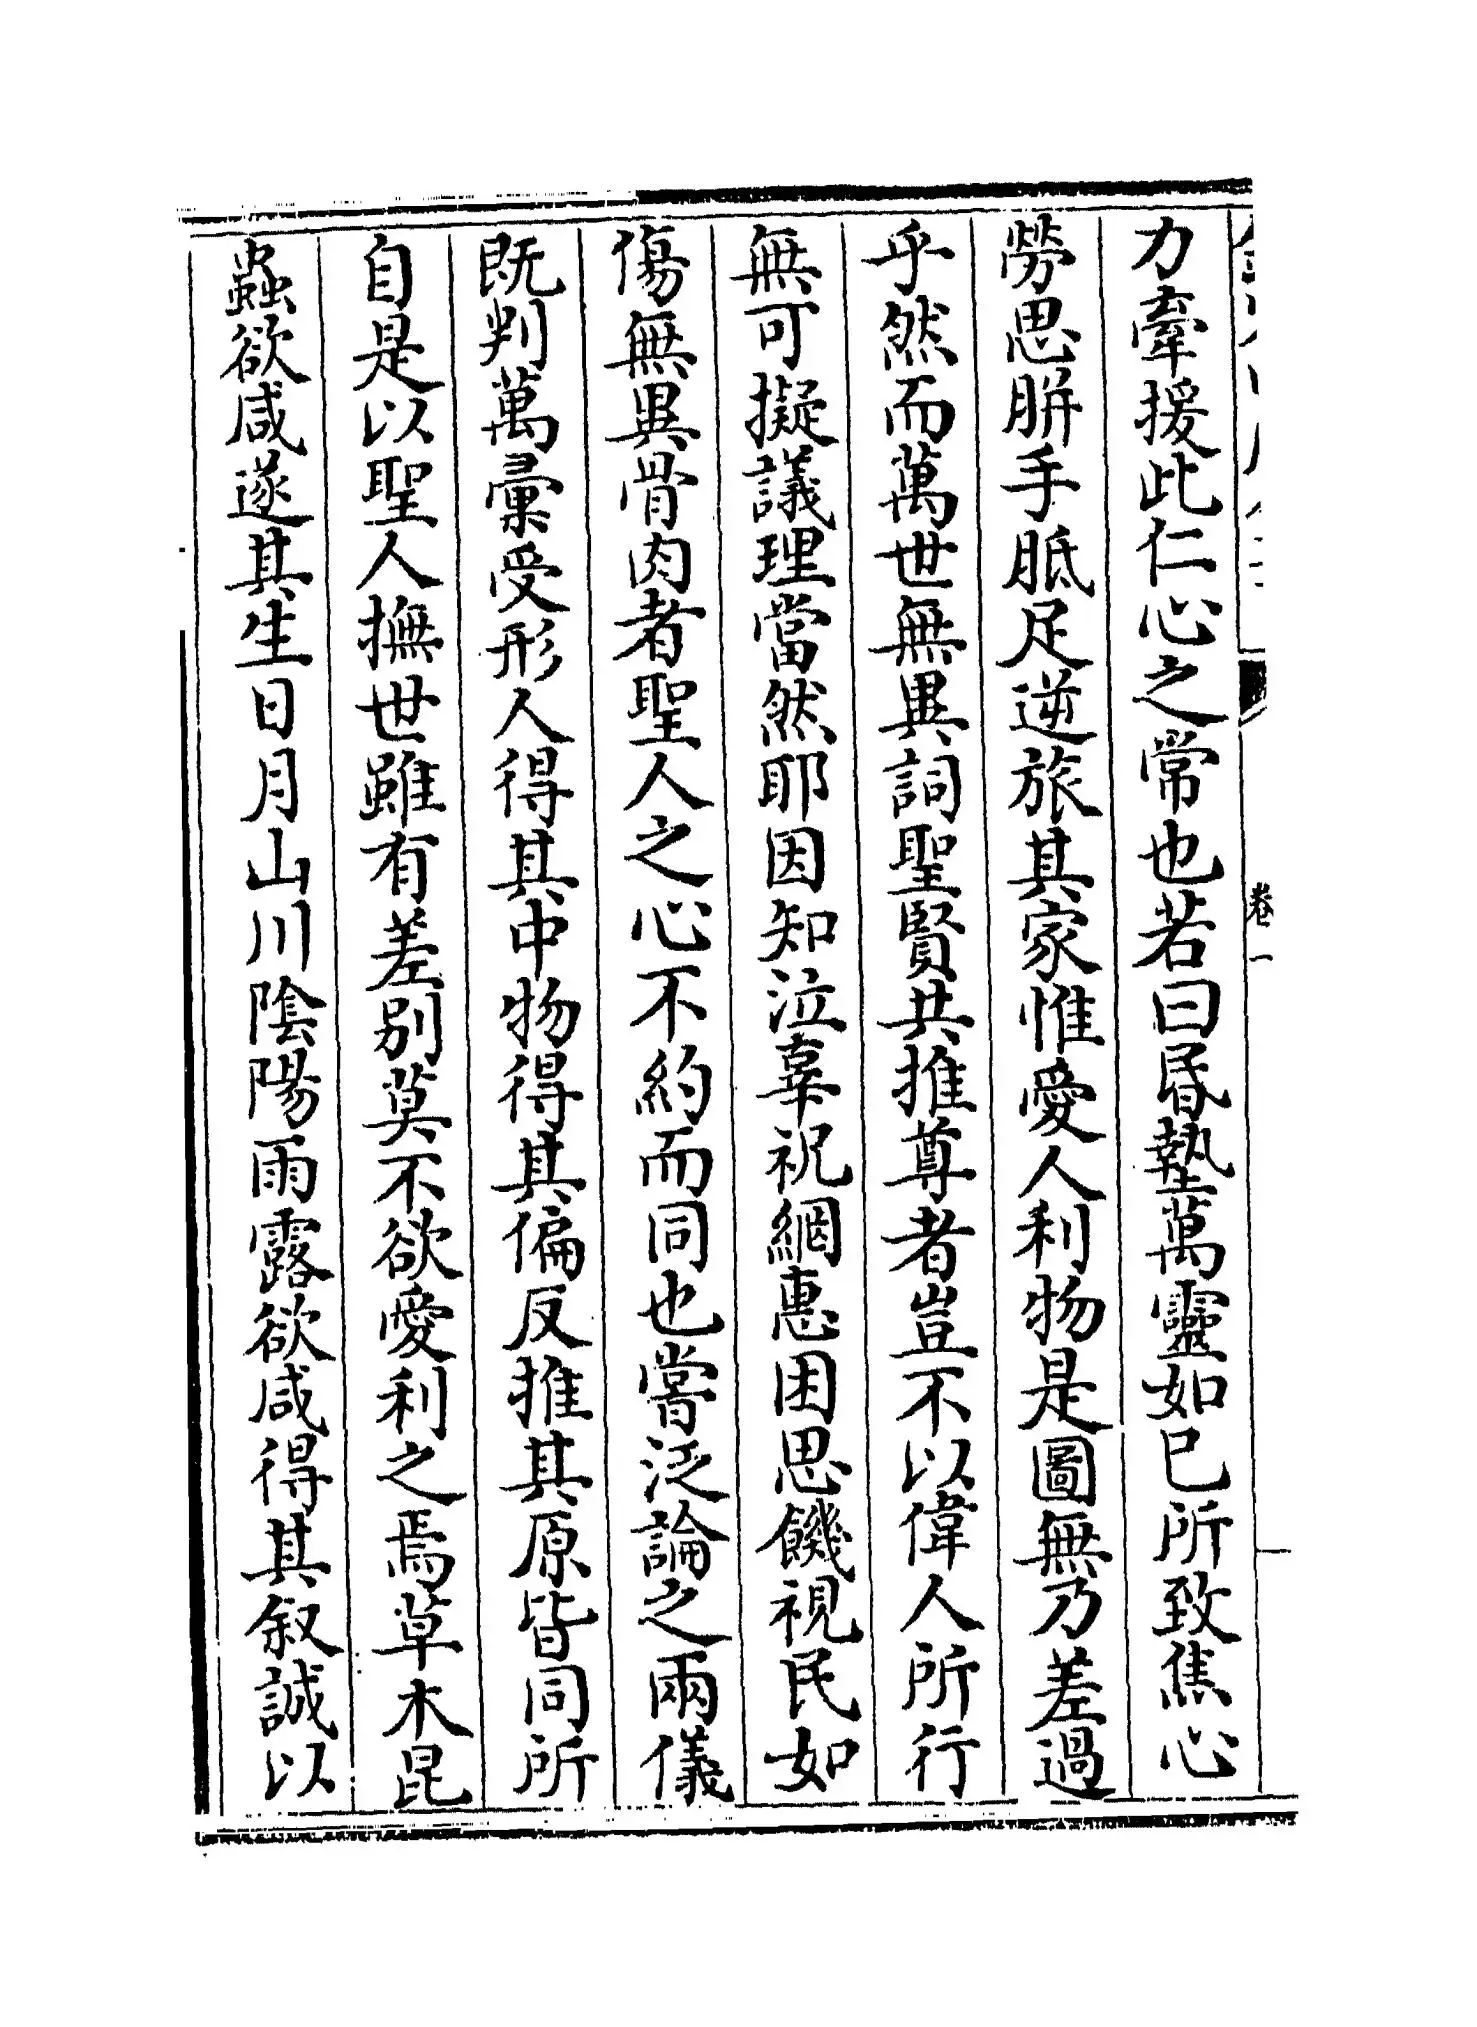 力牽援此仁心之常也若曰昬墊萬靈如已所致焦心
勞思胼手胝足逆旅其家惟愛人利物是圖無乃差過
乎然而萬世無異詞聖賢共推尊者豈不以偉人所行
無可擬議理當然耶因知泣辜祝網惠困思饑視民如
傷無異骨肉者聖人之心不約而同也嘗泛論之兩儀
既判萬彙受形人得其中物得其偏反推其原皆同所
自是以聖人撫世雖有差別莫不欲愛利之焉草木昆
蟲欲咸遂其生日月山川陰陽雨露欲咸得其叙誠以
卷一